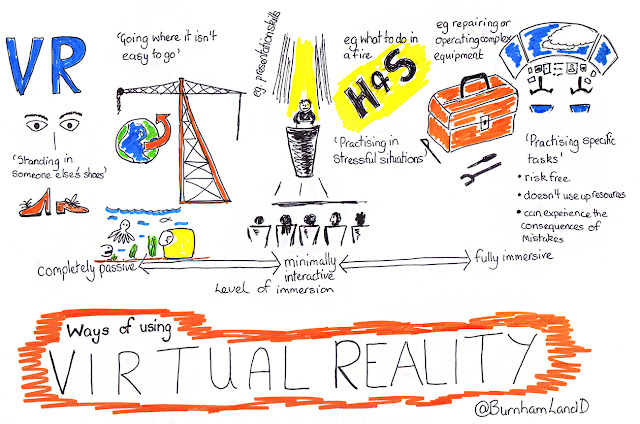 VR
'Going where it isn't
easy to go'
eg. presentation skills
eg what to do in
a fire
H&S
eg repairing or
operating complex
equipment
'Standing in
someone else's shoes'
'Practising in
stressful situations'
'Practising specific
tasks'
• risk free
• doesn't use up resources
• can experience the
consequences of
mistakes
completely passive
minimally
interactive
fully immersive
Level of immersion
Ways of using
VIRTUAL REALITY
@BurnhamLandD